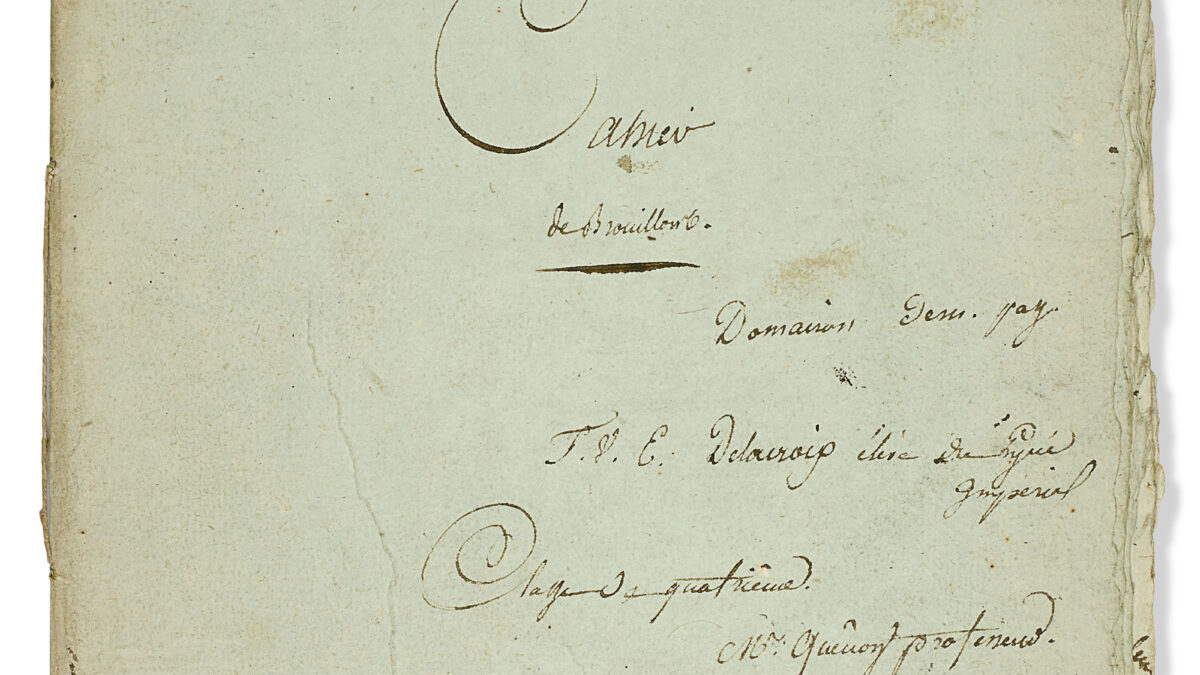 Cahier
de Brouillons.
Domairon
F. V. E. Delacroix élève du Lycée
Impérial
Classe de quatrième.
Mr. professeur.